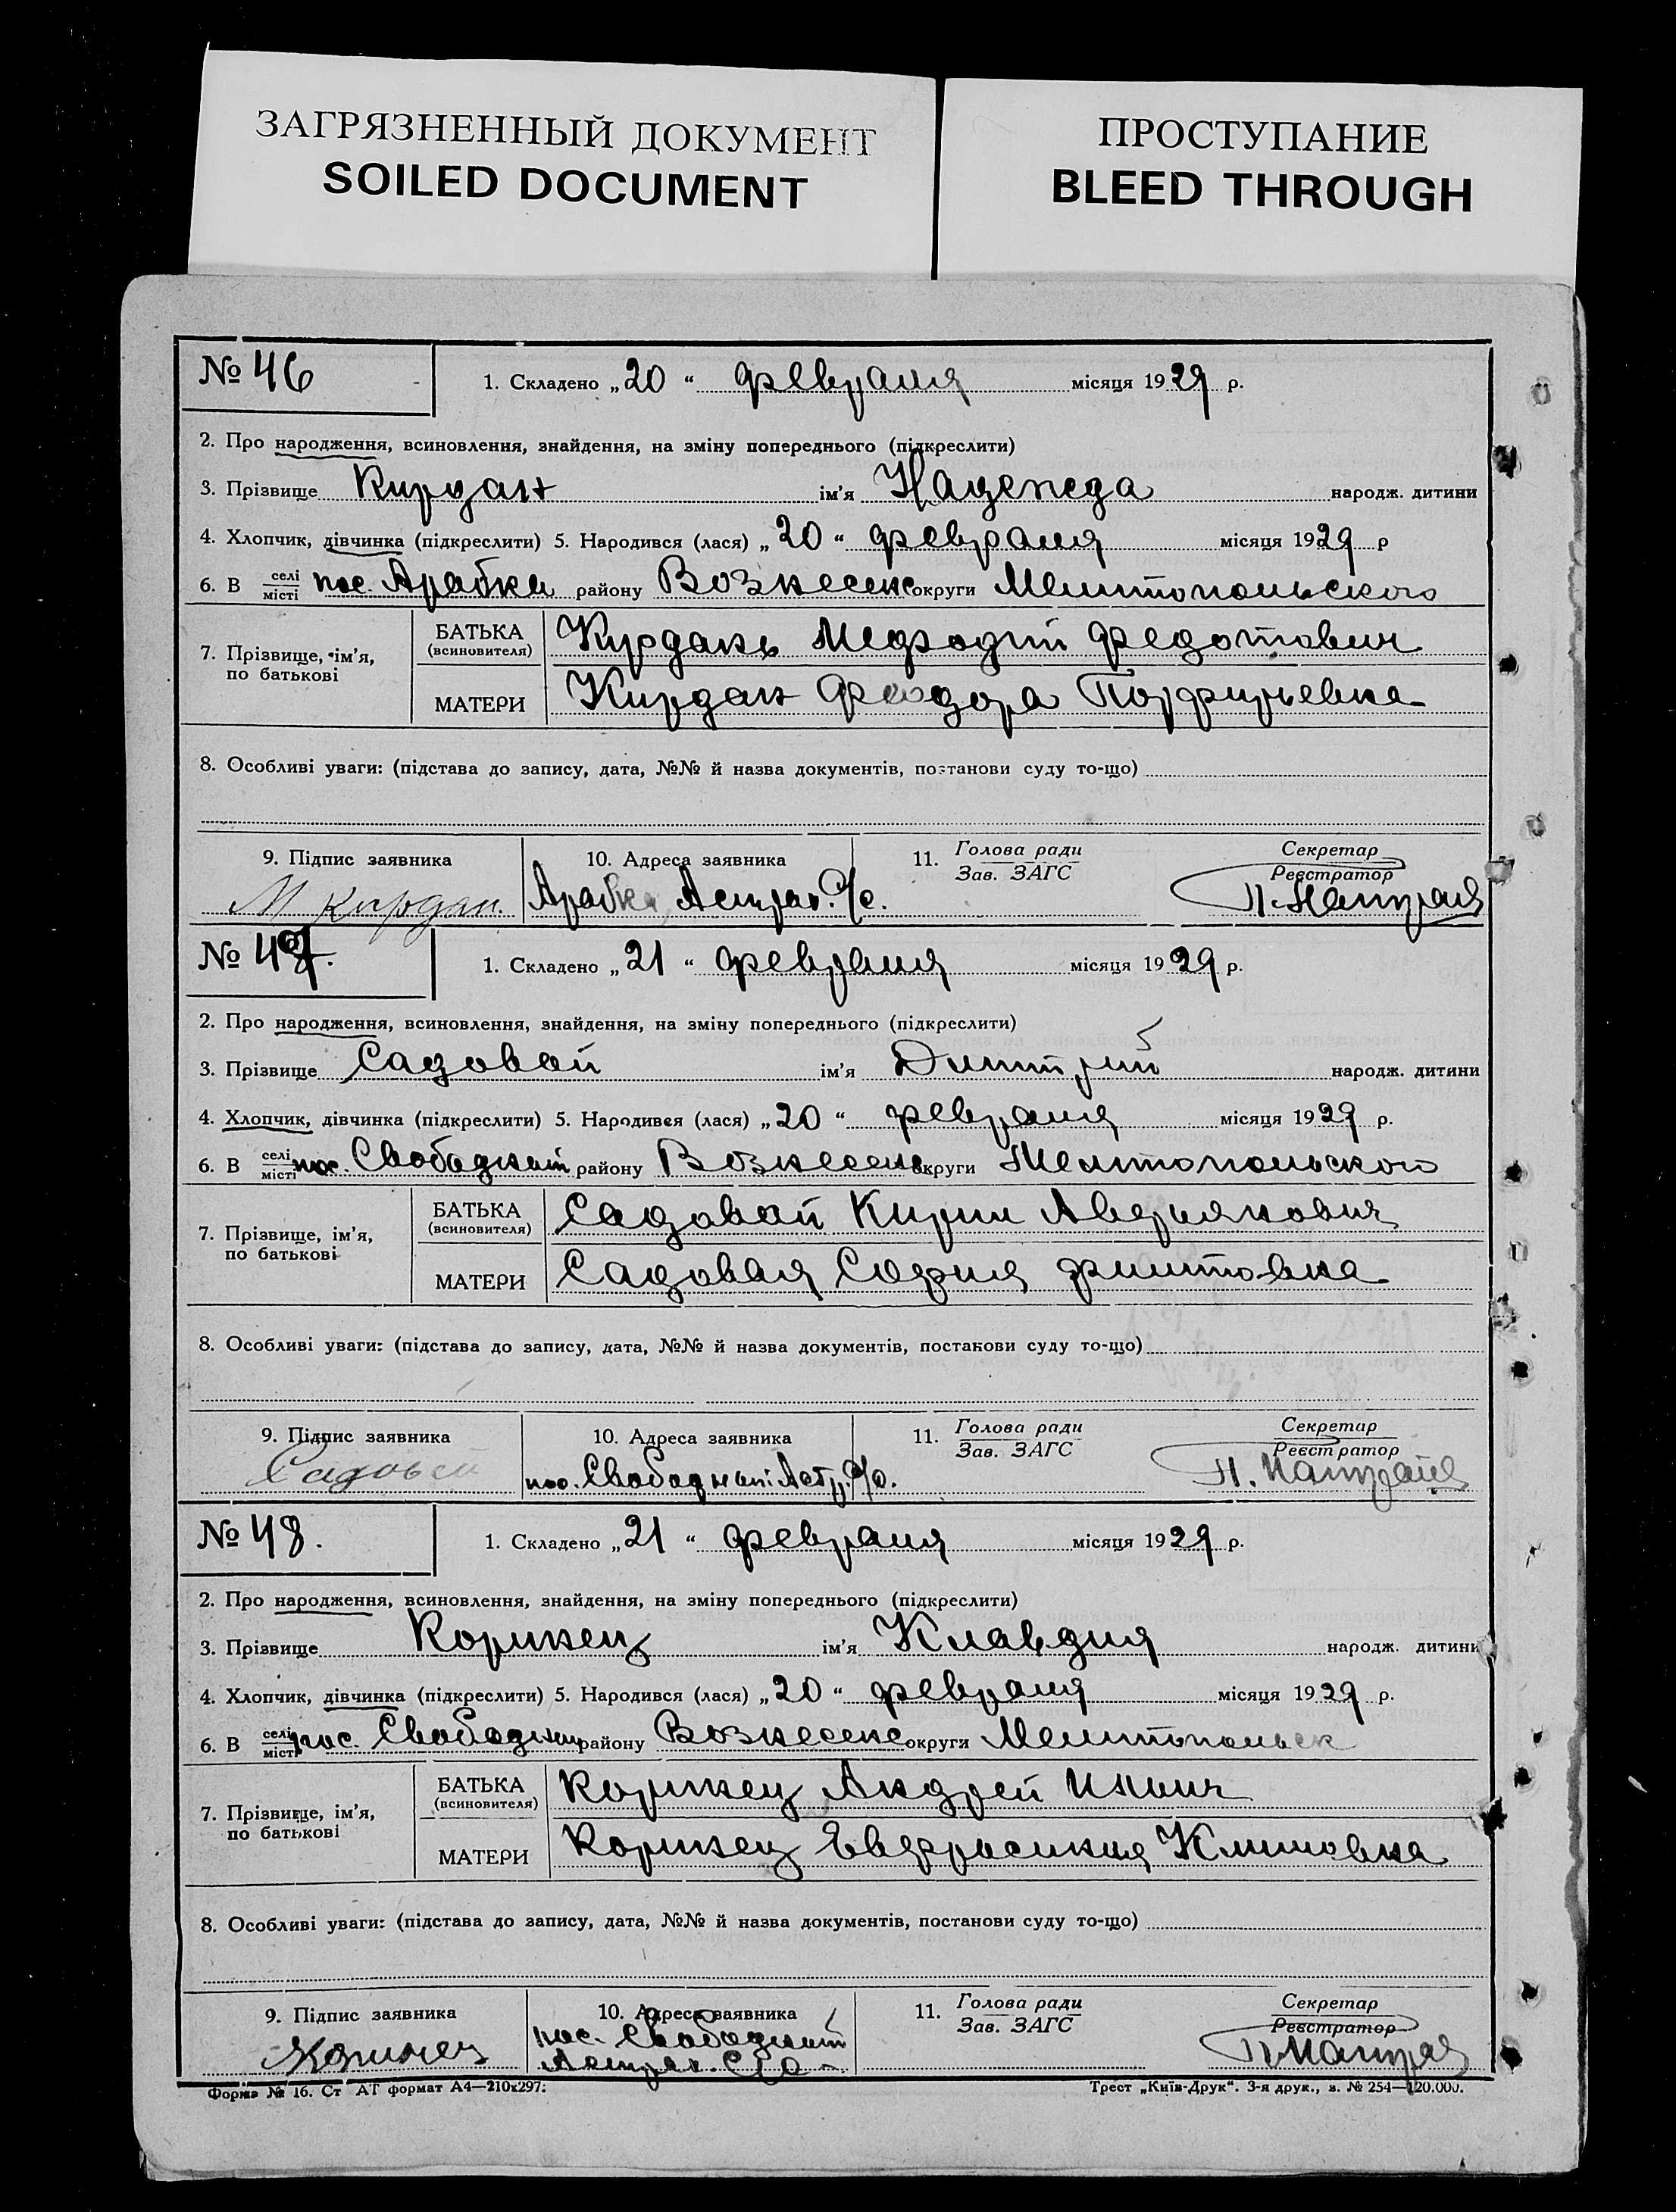 ЗАГРЯЗНЕННЫЙ ДОКУМЕНТ
SOILED DOCUMENT
ПРОСТУПАНИЕ
BLEED THROUGH
№ 46
1. Складено „20“ февраля місяця 1929 р.
2. Про народження, всиновлення, знайдення, на зміну попереднього (підкреслити)
3. Прізвище Кирдан ім’я Надежда народж. дитини
4. Хлопчик, дівчинка (підкреслити) 5. Народився (лася) „20“ февраля місяця 1929 р
6. В селі місті пос. Арабка району Вознесенс округи Мелитопольского
7. Прізвище, ім’я, по батькові
БАТЬКА (всиновителя) Курдань Мефодий Федотович
МАТЕРИ Кирдан Феодора Порфирьевна
8. Особливі уваги: (підстава до запису, дата, №№ й назва документів, постанови суду то-що)
9. Підпис заявника
10. Адреса заявника
11. Голова ради Зав. ЗАГС
Секретар Реєстратор
М Кирдан.
Арабка, Астрах. С/с.
№ 47.
1. Складено „21“ февраля місяця 1929 р.
2. Про народження, всиновлення, знайдення, на зміну попереднього (підкреслити)
3. Прізвище Садовой ім’я Димитрий народж. дитини
4. Хлопчик, дівчинка (підкреслити) 5. Народився (лася) „20“ февраля місяця 1929 р.
6. В селі місті пос. Свободный району Вознесенс округи Мелитопольского
7. Прізвище, ім’я, по батькові
БАТЬКА (всиновителя) Садовой Кирил Аверянович
МАТЕРИ Садовая София Филитовна
8. Особливі уваги: (підстава до запису, дата, №№ й назва документів, постанови суду то-що)
9. Підпис заявника
10. Адреса заявника
11. Голова ради Зав. ЗАГС
Секретар Реєстратор
Садовой
пос. Свободный Астр. С/с.
№ 48.
1. Складено „21“ февраля місяця 1929 р.
2. Про народження, всиновлення, знайдення, на зміну попереднього (підкреслити)
3. Прізвище Коринец ім’я Клавдия народж. дитини
4. Хлопчик, дівчинка (підкреслити) 5. Народився (лася) „20“ февраля місяця 1929 р.
6. В селі місті пос. Свободный району Вознесенс округи Мелитопольск
7. Прізвище, ім’я, по батькові
БАТЬКА (всиновителя) Коринец Андрей Ильич
МАТЕРИ Коринец Евфросиния Климовна
8. Особливі уваги: (підстава до запису, дата, №№ й назва документів, постанови суду то-що)
9. Підпис заявника
10. Адреса заявника
11. Голова ради Зав. ЗАГС
Секретар Реєстратор
Коринец
пос. Свободный
Астрах. С/с
Форма № 16. Ст АТ формат А4—210х297.
Трест „Київ-Друк“. 3-я друк., з. № 254—120.000.